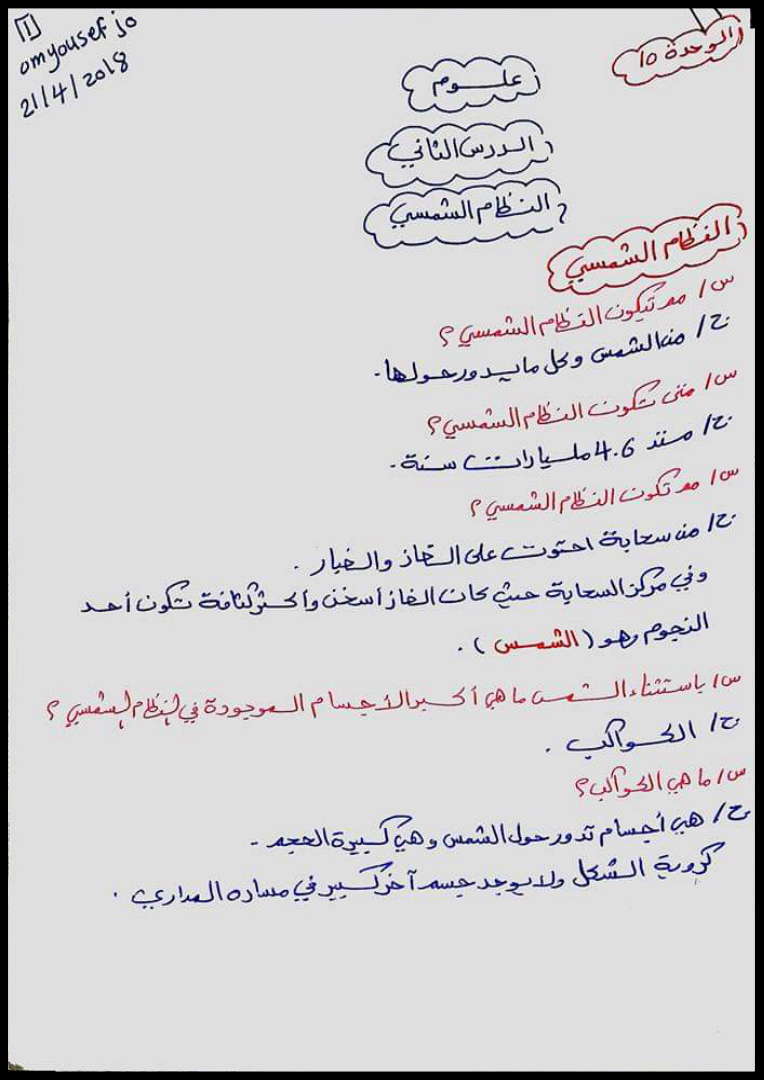 [1]
omyousef jo
21/4/2018
الوحدة 10
علوم
الدرس الثاني
النظام الشمسي
النظام الشمسي
س/ مم تيكون النظام الشمسي؟
ج/ من الشمس وكل ما يدور حولها.
س/ متى تكون النظام الشمسي؟
ج/ منذ 4.6 مليارات سنة.
س/ مم تكون النظام الشمسي؟
ج/ من سحابة احتوت على الغاز والغبار.
وفي مركز السحابة حيث كان الغاز أسخن وأكثر كثافة تكون أحد
النجوم وهو (الشمس).
س/ باستثناء الشمس ما هي أكبر الأجسام الموجودة في النظام الشمسي؟
ج/ الكواكب.
س/ ما هي الكواكب؟
ج/ هي أجسام تدور حول الشمس وهي كبيرة الحجم -
كروية الشكل ولا يوجد جسم آخر كبير في مساره المداري.